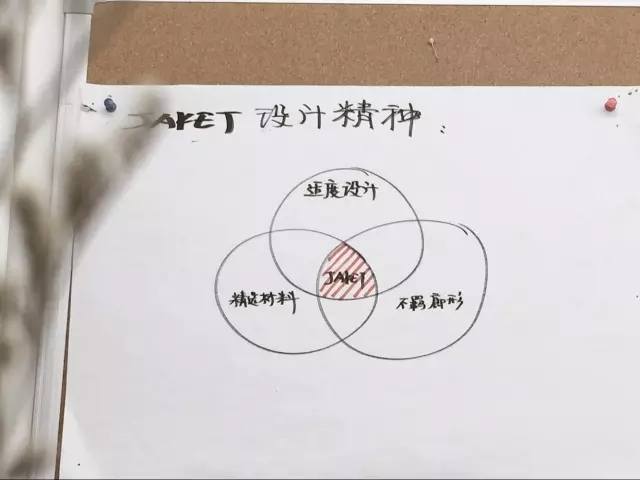 JAKET 设计精神:
适度设计
JAKET
精选材料
不羁廓形